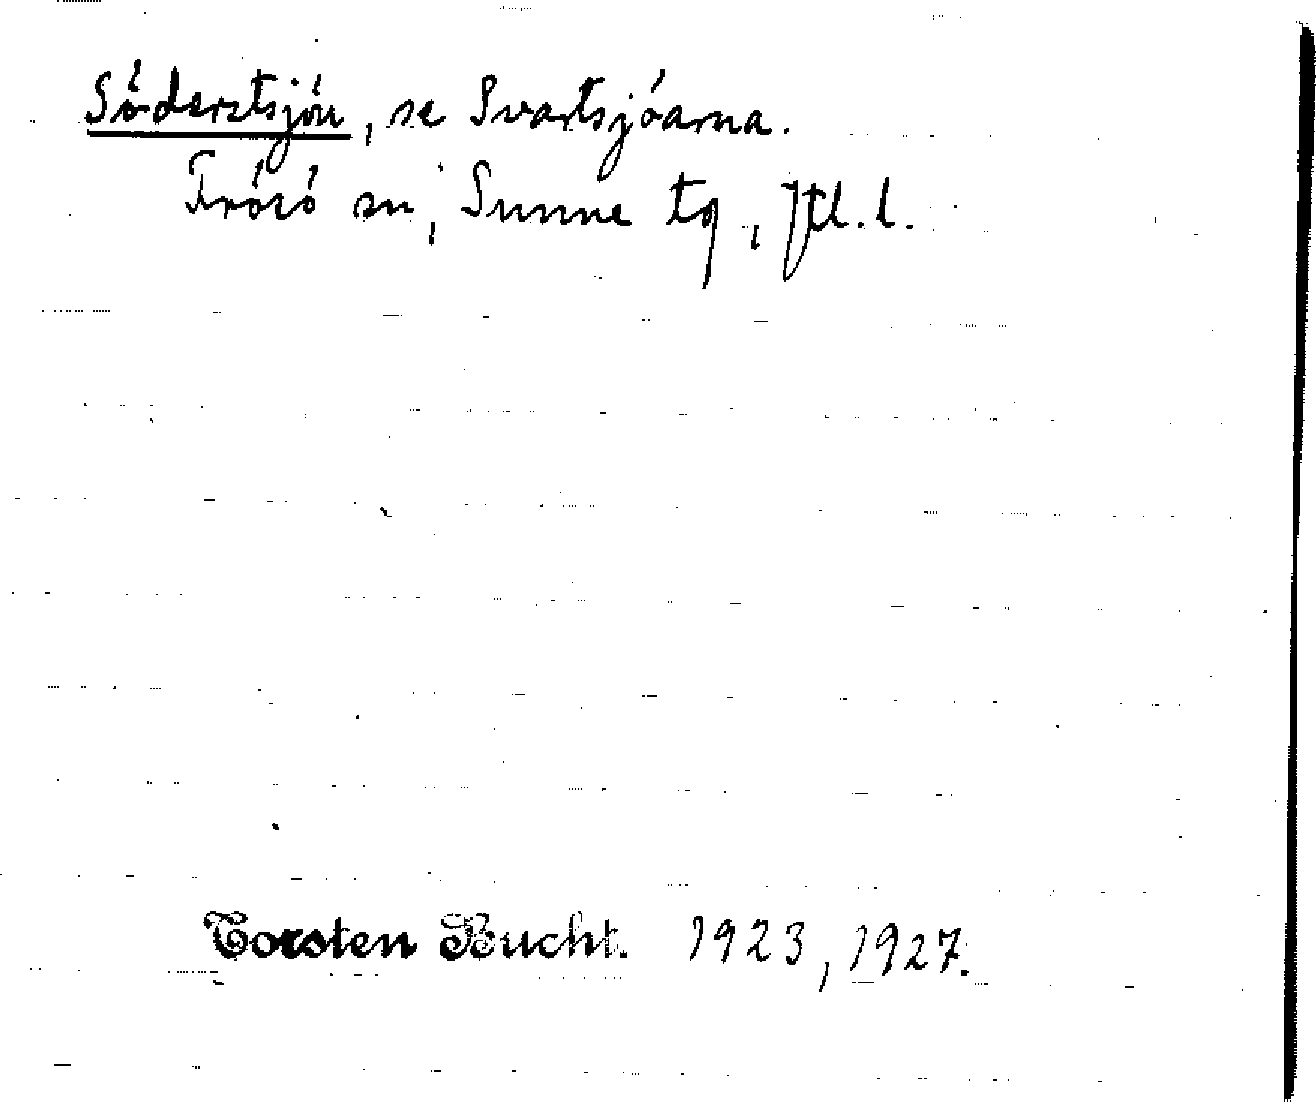 Södersttjön, se Svartsjöarna.
Frösö sn, Sunne tg, Jtl. l.
Torsten Bucht. 1923, 1927.